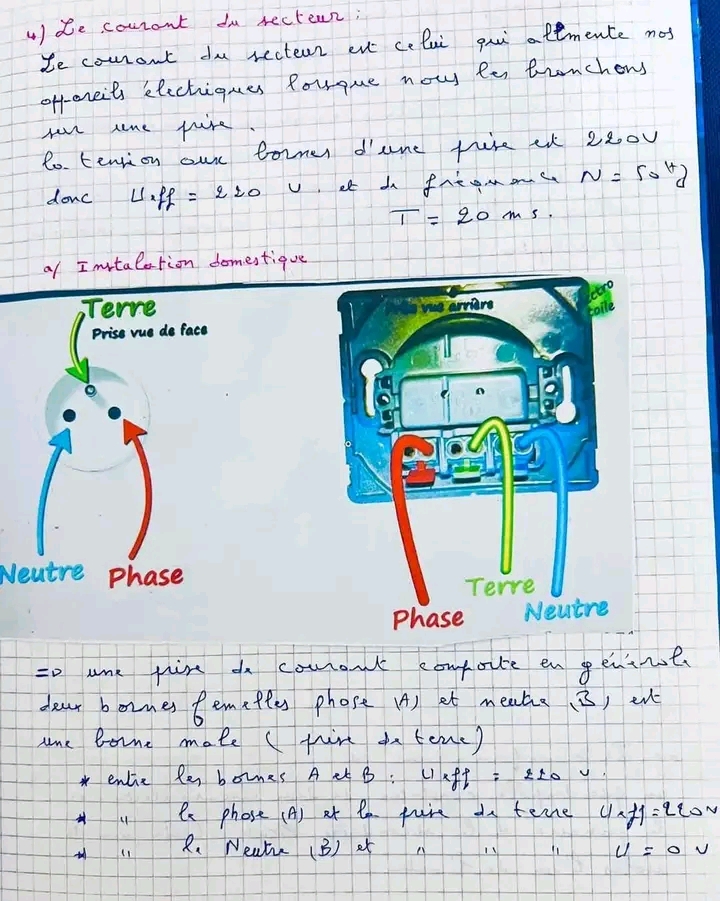 4) Le courant du secteur :
Le courant du secteur est celui qui alimente nos
appareils électriques lorsque nous les branchons
sur une prise.
la tension aux bornes d'une prise est 220V
donc Ueff = 220 V. et de fréquence N = 50 Hz
T = 20 ms.
a/ Instalation domestique
Terre
Prise vue de face
Neutre Phase
Prise vue arrière
Phase
Terre
Neutre
=> une prise de courant comporte en générale
deux bornes femelles phase (A) et neutre (B) est
une borne male ( prise de terre)
* entre les bornes A et B : Ueff = 220 V.
* " la phase (A) et la prise de terre Ueff=220V
* " le Neutre (B) et " " " U = 0 V